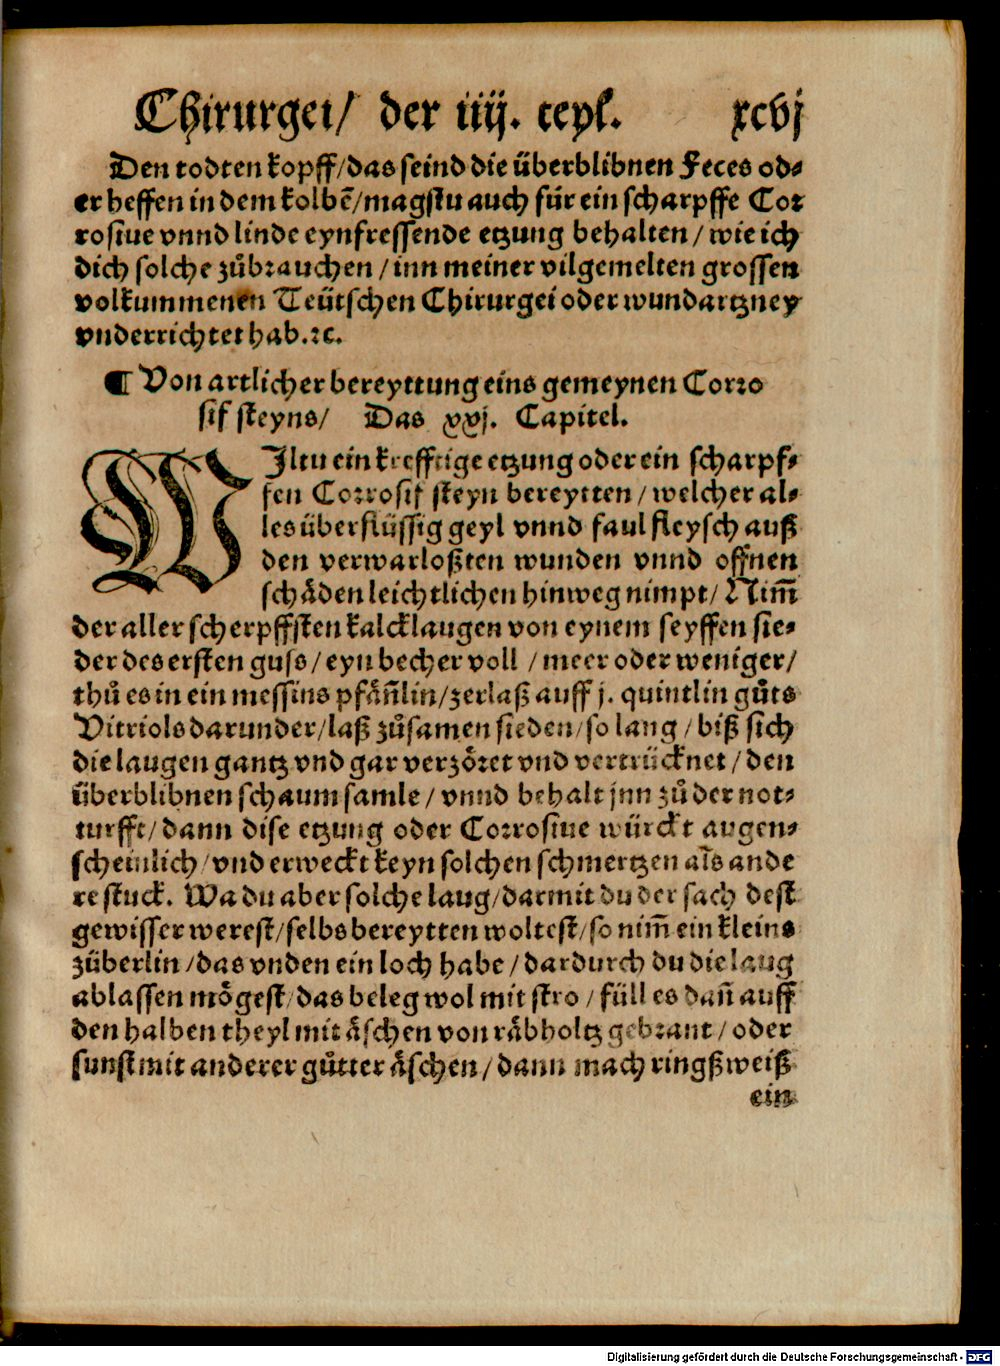 Chirurgei/ der iiij. teyl. xcvj
Den todten kopff/das seind die überblibnen Feces od⸗
er heffen in dem kolbẽ/magstu auch für ein scharpffe Cor
rosiue vnnd linde eynfressende etzung behalten/wie ich
dich solche zůbrauchen/inn meiner vilgemelten grossen
volkummenen Teütschen Chirurgei oder wundartzney
vnderrichtet hab.ꝛc.
¶ Von artlicher bereyttung eins gemeynen Corro
sif steyns/ Das xxj. Capitel.
WJltu ein krefftige etzung oder ein scharpf⸗
fen Corrosif steyn bereytten/welcher al⸗
les überflüssig geyl vnnd faul fleysch auß
den verwarloßten wunden vnnd offnen
schäden leichtlichen hinweg nimpt/Nim̃
der aller scherpffsten kalcklaugen von eynem seyffen sie⸗
der des ersten guss/eyn becher voll /meer oder weniger/
thů es in ein messins pfäñlin/zerlaß auff j. quintlin gůts
Vitriols darunder/laß zůsamen sieden/so lang/biß sich
die laugen gantz vnd gar verzöret vnd vertrücknet/den
überblibnen schaum samle/vnnd behalt jnn zů der not⸗
turfft/dann dise etzung oder Corrosiue würckt augen⸗
scheinlich/vnd erweckt keyn solchen schmertzen als ande
re stuck. Wa du aber solche laug/darmit du der sach dest
gewisser werest/selbs bereytten woltest/so nim̃ ein kleins
züberlin/das vnden ein loch habe/dardurch du die laug
ablassen mögest/das beleg wol mit stro/füll es dañ auff
den halben theyl mit äschen von räbholtz gebrant/oder
sunst mit anderer gůtter äschen/dann mach ringßweiß
ein
Digitalisierung gefördert durch die Deutsche Forschungsgemeinschaft - DFG